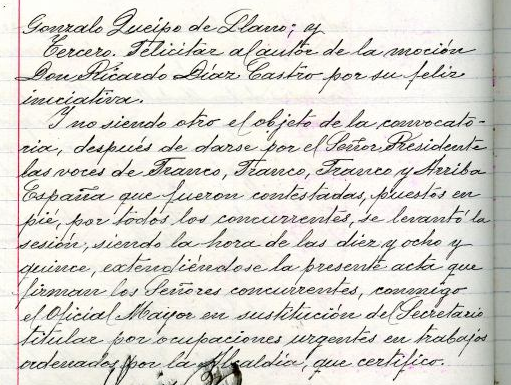 Gonzalo Queipo de Llano; y
Tercero. Felicitar al autor de la moción
Don Ricardo Díaz Castro por su feliz
iniciativa.
Y no siendo otro el objeto de la convocato-
ria, después de darse por el Señor Presidente
las voces de Franco, Franco, Franco y Arriba
España que fueron contestadas, puestos en
pié, por todos los concurrentes, se levantó la
sesión, siendo la hora de las diez y ocho y
quince, extendiéndose la presente acta que
firman los Señores concurrentes, conmigo
el Oficial Mayor en sustitución del Secretario
titular por ocupaciones urgentes en trabajos
ordenados por la Alcaldía, que certifico.